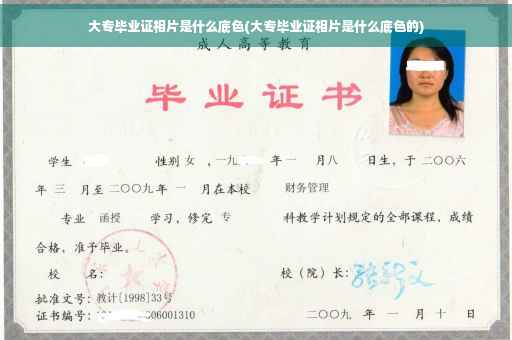 大专毕业证相片是什么底色(大专毕业证相片是什么底色的)
成人高等教育
毕业证书
学生 性别 女 ,一九 年 一 月八 日生，于 二〇〇六
年 三 月至 二〇〇九 年 一 月在本校 财务管理
专业 函授 学习，修完 专 科教学计划规定的全部课程，成绩
合格，准予毕业。
校 名： 校（院）长：
批准文号：教计[1998]33号
证书编号： 06001310 二〇〇九 年 一 月 十 日